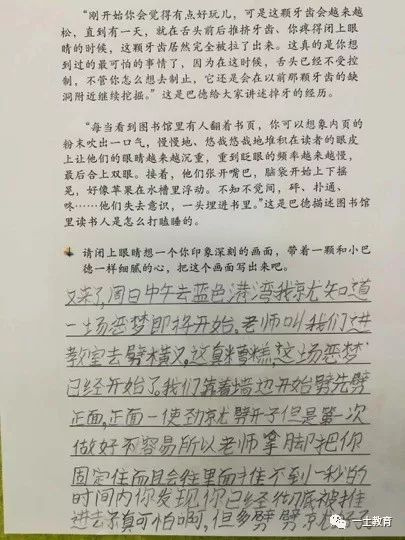 “刚开始你会觉得有点好玩儿,可是这颗牙齿会越来越
松,直到有一天,就在舌头前后推挤牙齿、你疼得闭上眼
睛的时候,这颗牙齿居然完全被拉了出来。这真的是你想
到过的最可怕的事情了,因为在这时候,舌头已经不受控
制,不管你怎么想去制止,它还是会在以前那颗牙齿的缺
洞附近继续挖掘。”这是巴德给大家讲述掉牙的经历。
“每当看到图书馆里有人翻着书页,你可以想象内页的
粉末吹出一口气,慢慢地、悠哉悠哉地堆积在读者的眼皮
上让他们的眼睛越来越沉重,重到眨眼的频率越来越慢,
最后合上双眼。接着,他们张开嘴巴,脑袋开始上下摇
晃,好像苹果在水槽里浮动。不知不觉间,砰、扑通、
咚……他们失去意识,一头埋进书里。”这是巴德描述图书馆
里读书人是怎么打瞌睡的。
请闭上眼睛想一个你印象深刻的画面,带着一颗和小巴
德一样细腻的心,把这个画面写出来吧。
又来了,周日中午去蓝色港湾我就知道
一场恶梦即将开始,老师叫我们进
教室去劈横叉,这真糟糕,这场恶梦
已经开始了,我们靠着墙边开始劈先劈
正面,正面一使劲就劈开了但是第一次
做好不容易所以老师拿脚把你
固定住而且会往里面推不到一秒的
时间内你发现你已经彻底被推
进去了真可怕啊,但多劈劈就
一土教育